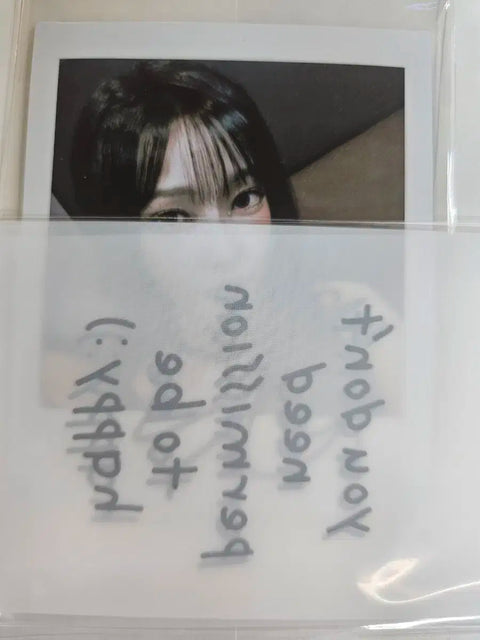 you don't
need
permission
to be
happy :)